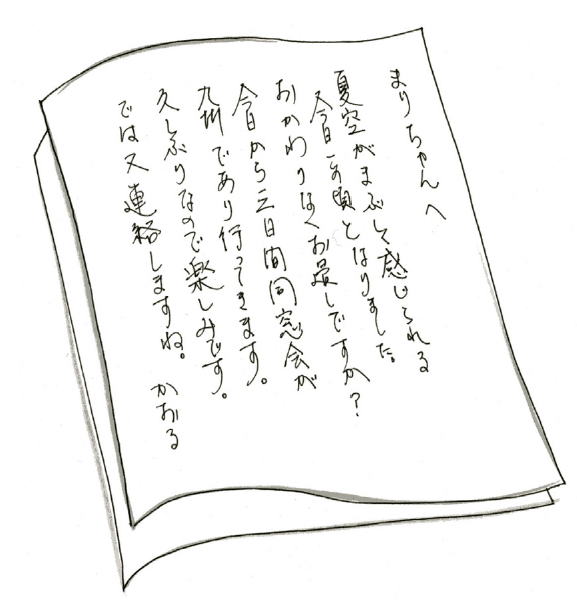 まりちゃんへ
夏空がまぶしく感じられる
今日この頃となりました。
おかわりなくお過しですか?
今日から三日間同窓会が
九州であり行ってきます。
久しぶりなので楽しみです。
では又連絡しますね。 かおる